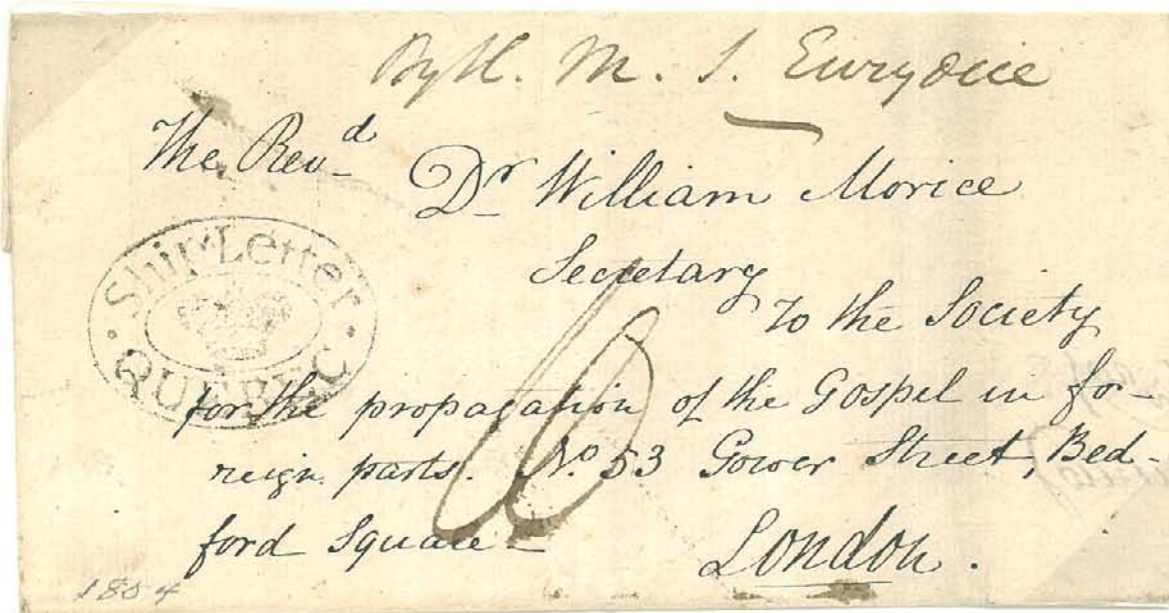 By H. M. S. Eurydice
The Revd Dr William Morice
Secretary
to the Society
for the propagation of the Gospel in fo-
reign parts. No 53 Gower Street, Bed-
ford Square
London.
Ship Letter
QUEBEC
1804